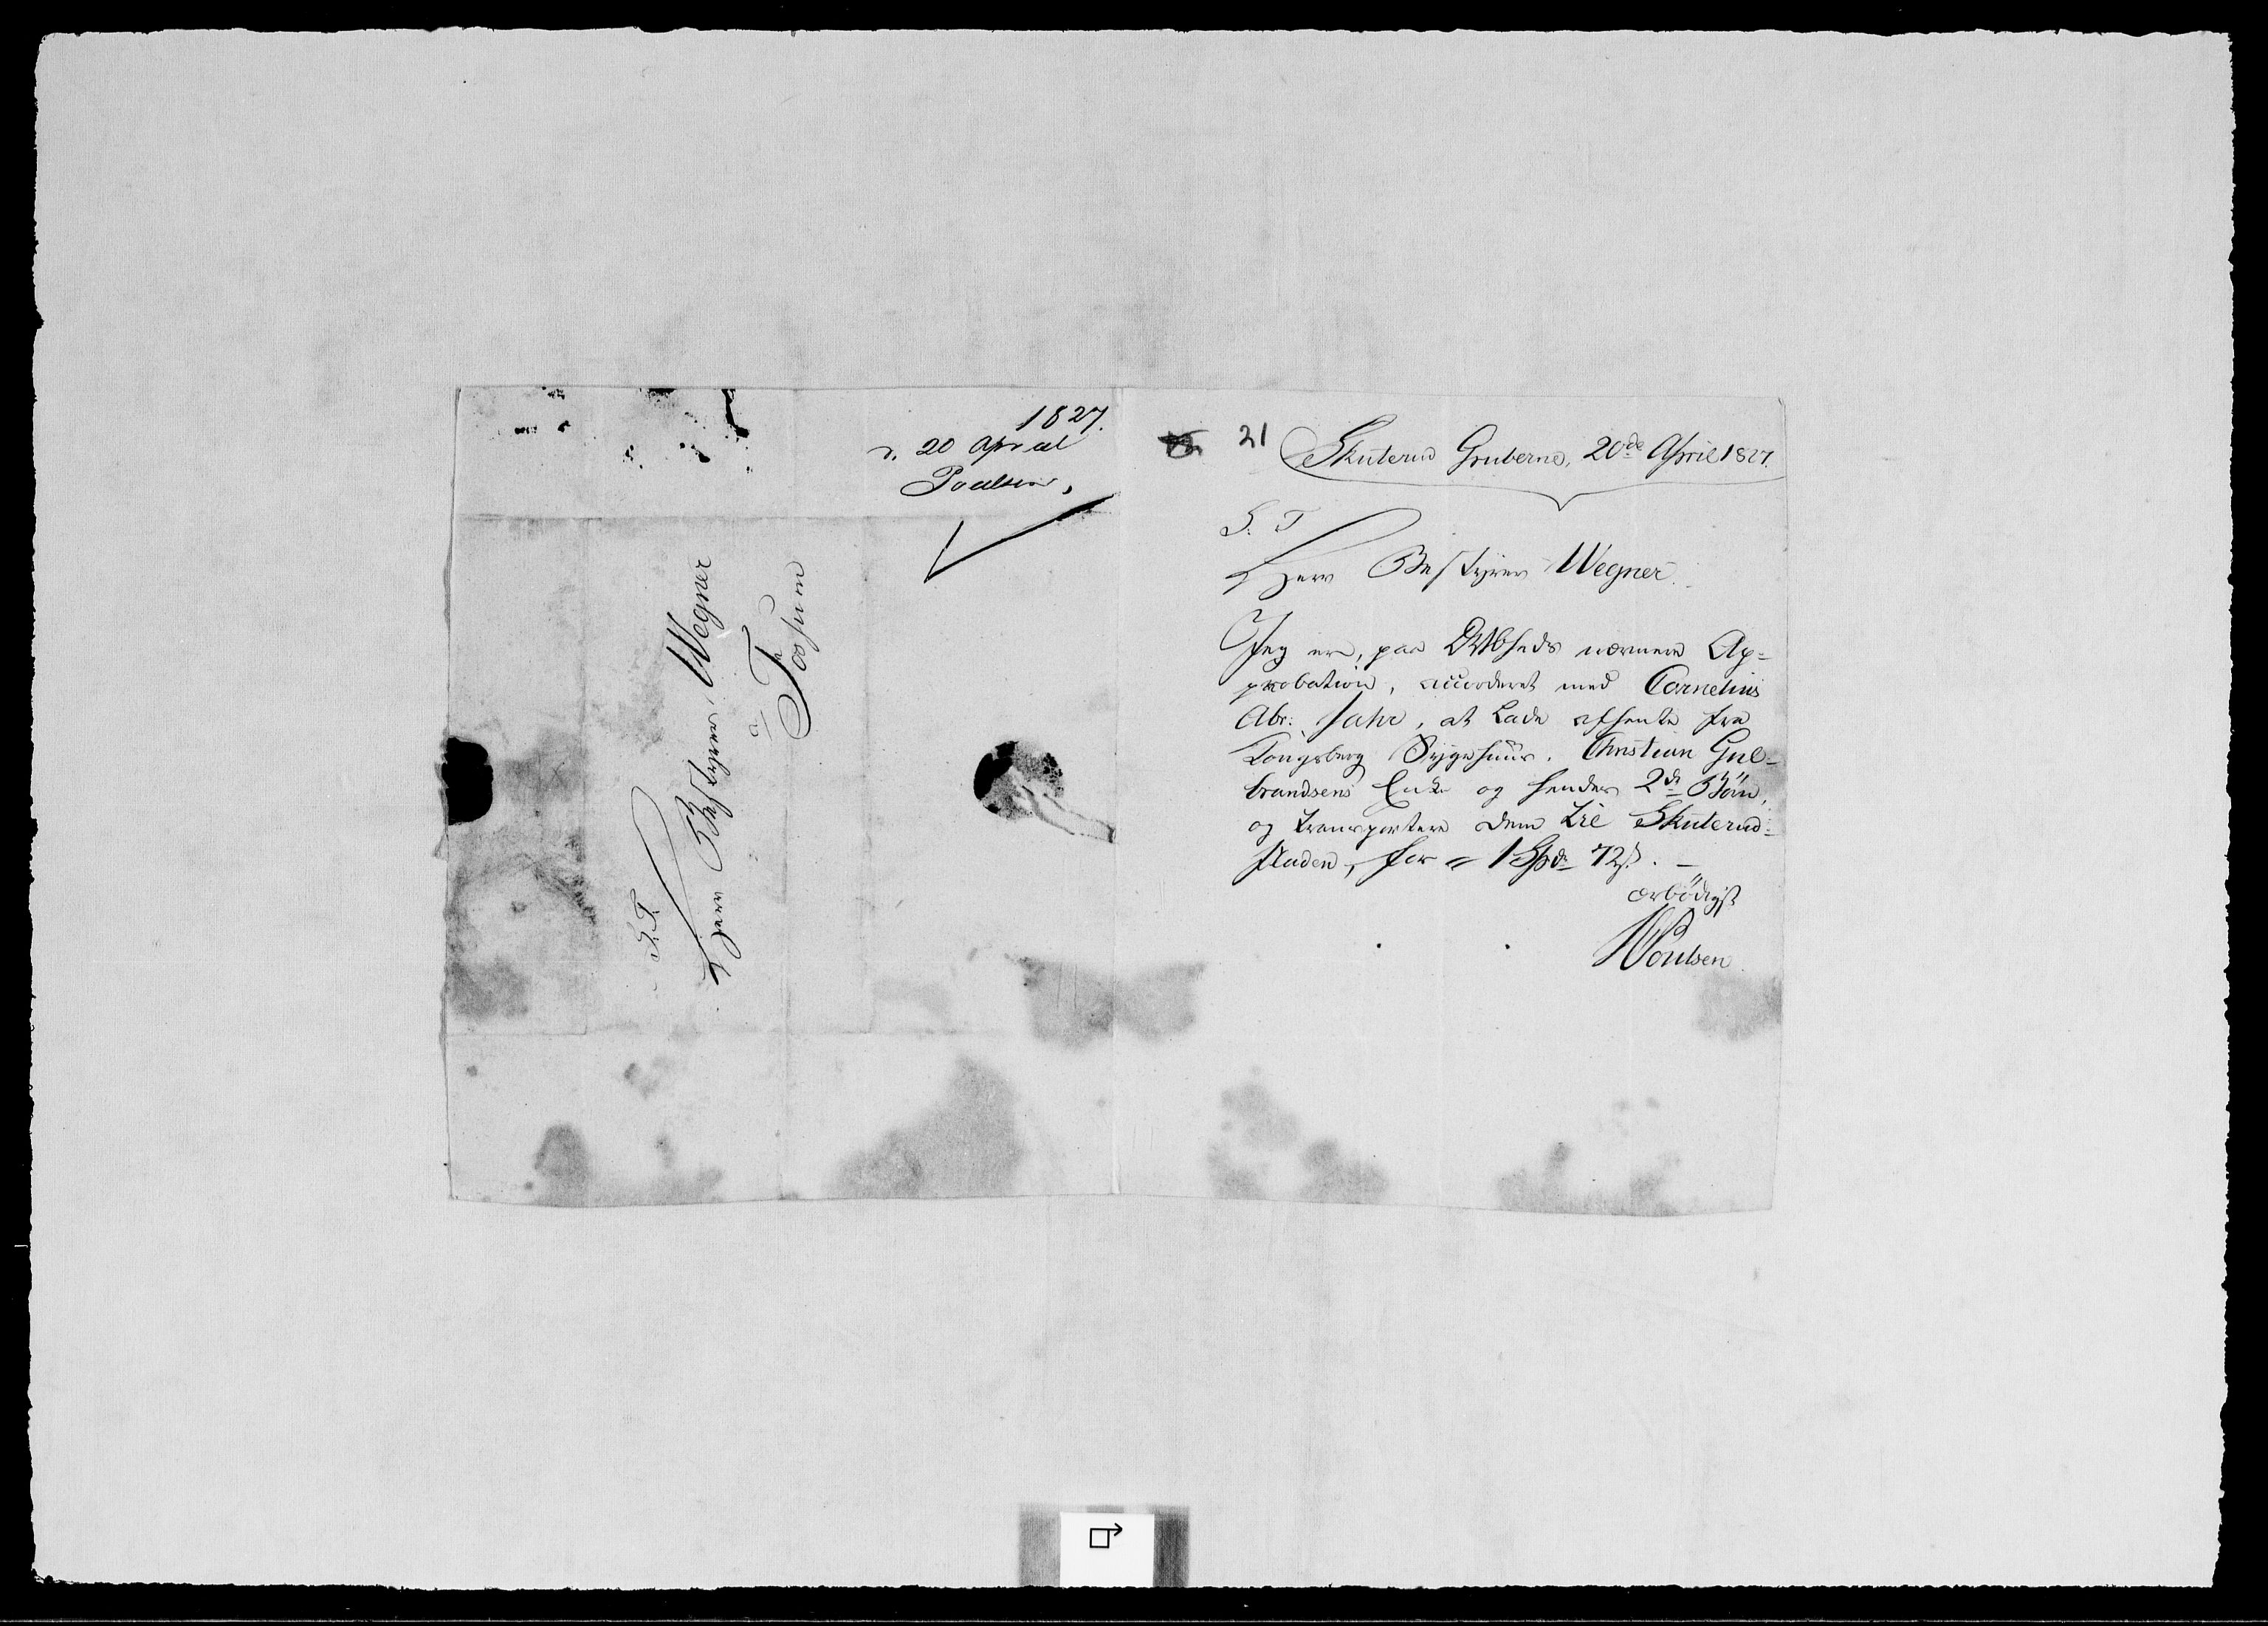 1827.
d. 20 April
Poulsen,
S. T.
Herr Bestyrer Wegner
a
Fossum
21
Skuterud Gruberne, 20de April 1827.
S. T
Herr Bestyrer Wegner.
Jeg er, paa nærmere Ap-
probation, accorderet med Cornelius
Abr: at lade afhente fra
Kongsberg Sygehuus, Christian Gul-
brandsens Enke og hendes 2de Börn,
og transportere dem til Skuterud-
fladen, for 1 Spd 72 s. —
ærbödigst
Poulsen